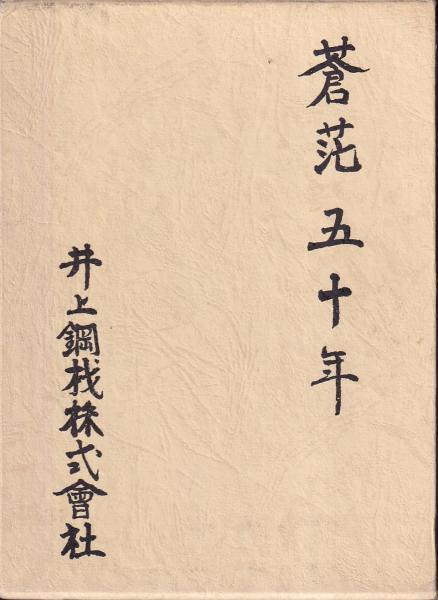 蒼茫 五十年
井上鋼材株式會社